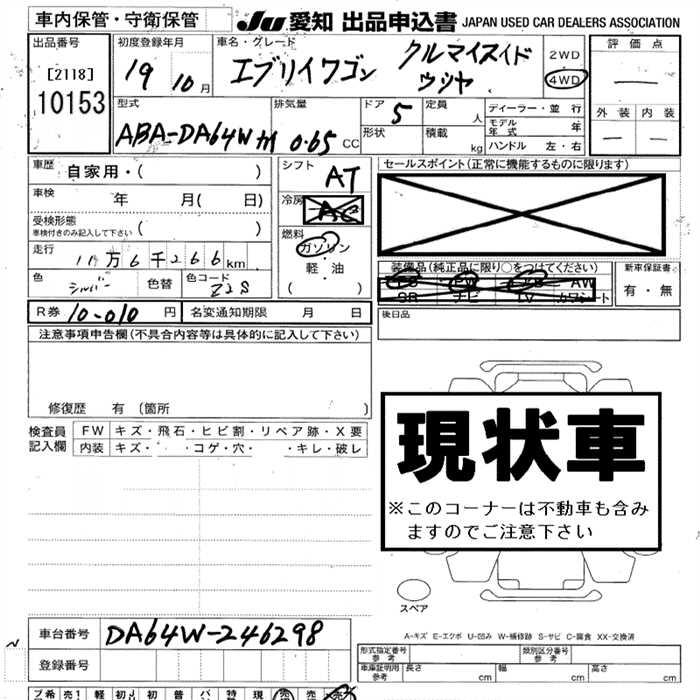 車内保管・守衛保管
JU 愛知 出品申込書 JAPAN USED CAR DEALERS ASSOCIATION
出品番号
[2118]
10153
初度登録年月
19 10月
車名・グレード
エブリイワゴン クルマイスイド
ウツヤ
2WD
4WD
評価点
—
外装 内装
— —
型式
ABA-DA64W
排気量
0.65 CC
ドア 5
形状
定員 人
積載 kg
ディーラー・並行
モデル年式 年
ハンドル 左・右
車歴 自家用・( )
車検 年 月( 日)
受検形態
車検付きのみ記入して下さい ( )
走行 11万6千266km
色 シルバー 色替 色コード Z2S
シフト AT
冷房 AC
燃料
ガソリン
軽・油
( )
セールスポイント(正常に機能するものに限ります)
装備品(純正品に限り○をつけてください)
PS PW AB AW
SR ナビ TV カワシート
新車保証書
有・無
R券 10-010 円 名変通知期限 月 日
後日品
注意事項申告欄(不具合内容等は具体的に記入して下さい)
修復歴 有 (箇所 )
検査員記入欄
FW キズ・飛石・ヒビ割・リペア跡・X要
内装 キズ・ ・コゲ・穴・ ・キレ・破レ
現状車
※このコーナーは不動車も含み
ますのでご注意下さい
スペア
A-キズ E-エクボ U-凹み W-補修跡 S-サビ C-腐食 XX-交換済
車台番号 DA64W-246298
登録番号
形式指定番号 参考
類別区分番号 参考
車庫証明用 参考 長さ cm 幅 cm 高さ cm